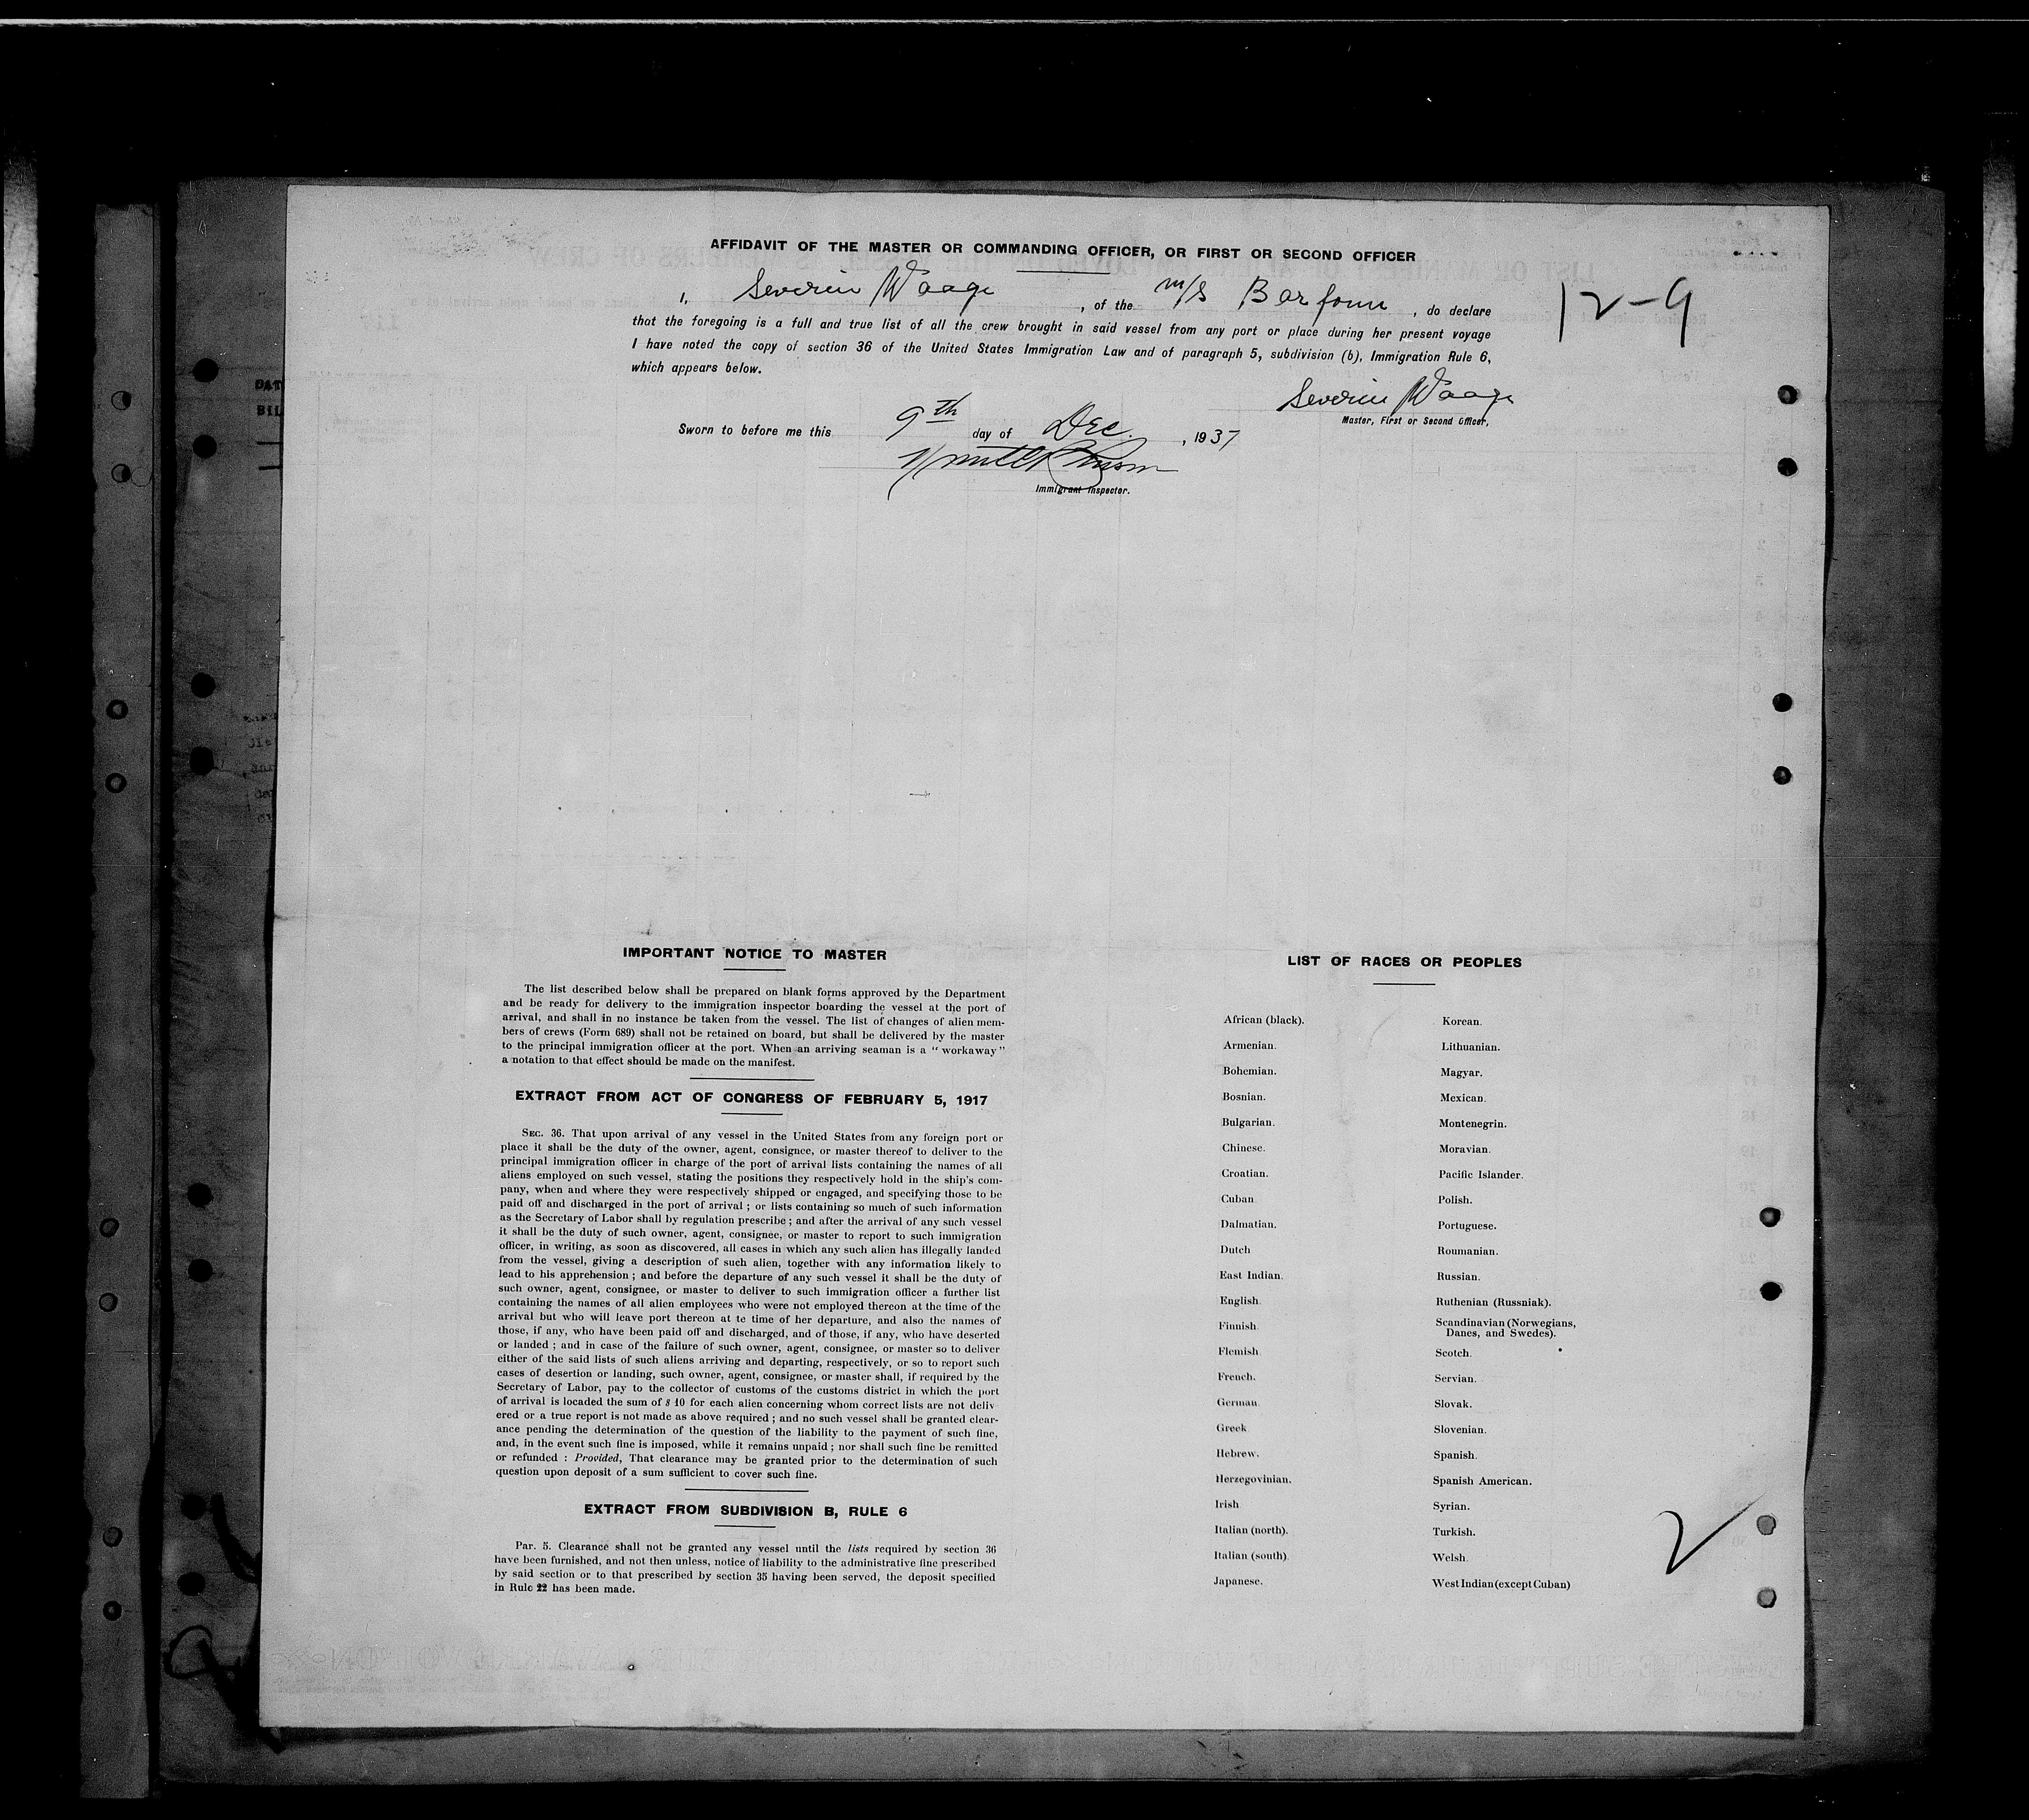 AFFIDAVIT OF THE MASTER OR COMMANDING OFFICER, OR FIRST OR SECOND OFFICER
I, Severin Waage, of the m/s Barfonn, do declare
12-9
that the foregoing is a full and true list of all the crew brought in said vessel from any port or place during her present voyage
I have noted the copy of section 36 of the United States Immigration Law and of paragraph 5, subdivision (b), Immigration Rule 6,
which appears below.
Severin Waage
Master, First or Second Officer,
Sworn to before me this 9th day of Dec., 1937
Immigrant Inspector.
DAT
BIL
IMPORTANT NOTICE TO MASTER
The list described below shall be prepared on blank forms approved by the Department
and be ready for delivery to the immigration inspector boarding the vessel at the port of
arrival, and shall in no instance be taken from the vessel. The list of changes of alien mem-
bers of crews (Form 689) shall not be retained on board, but shall be delivered by the master
to the principal immigration officer at the port. When an arriving seaman is a "workaway"
a notation to that effect should be made on the manifest.
EXTRACT FROM ACT OF CONGRESS OF FEBRUARY 5, 1917
SEC. 36. That upon arrival of any vessel in the United States from any foreign port or
place it shall be the duty of the owner, agent, consignee, or master thereof to deliver to the
principal immigration officer in charge of the port of arrival lists containing the names of all
aliens employed on such vessel, stating the positions they respectively hold in the ship's com-
pany, when and where they were respectively shipped or engaged, and specifying those to be
paid off and discharged in the port of arrival ; or lists containing so much of such information
as the Secretary of Labor shall by regulation prescribe ; and after the arrival of any such vessel
it shall be the duty of such owner, agent, consignee, or master to report to such immigration
officer, in writing, as soon as discovered, all cases in which any such alien has illegally landed
from the vessel, giving a description of such alien, together with any information likely to
lead to his apprehension ; and before the departure of any such vessel it shall be the duty of
such owner, agent, consignee, or master to deliver to such immigration officer a further list
containing the names of all alien employees who were not employed thereon at the time of the
arrival but who will leave port thereon at te time of her departure, and also the names of
those, if any, who have been paid off and discharged, and of those, if any, who have deserted
or landed ; and in case of the failure of such owner, agent, consignee, or master so to deliver
either of the said lists of such aliens arriving and departing, respectively, or so to report such
cases of desertion or landing, such owner, agent, consignee, or master shall, if required by the
Secretary of Labor, pay to the collector of customs of the customs district in which the port
of arrival is locaded the sum of $ 10 for each alien concerning whom correct lists are not deliv
ered or a true report is not made as above required ; and no such vessel shall be granted clear-
ance pending the determination of the question of the liability to the payment of such fine,
and, in the event such fine is imposed, while it remains unpaid ; nor shall such fine be remitted
or refunded : Provided, That clearance may be granted prior to the determination of such
question upon deposit of a sum sufficient to cover such fine.
EXTRACT FROM SUBDIVISION B, RULE 6
Par. 5. Clearance shall not be granted any vessel until the lists required by section 36
have been furnished, and not then unless, notice of liability to the administrative fine prescribed
by said section or to that prescribed by section 35 having been served, the deposit specified
in Rule 22 has been made.
LIST OF RACES OR PEOPLES
African (black).
Armenian.
Bohemian.
Bosnian.
Bulgarian.
Chinese.
Croatian.
Cuban
Dalmatian.
Dutch
East Indian.
English.
Finnish.
Flemish
French.
German
Greek
Hebrew.
Herzegovinian.
Irish
Italian (north).
Italian (south)
Japanese.
Korean.
Lithuanian.
Magyar.
Mexican.
Montenegrin.
Moravian.
Pacific Islander.
Polish.
Portuguese.
Roumanian.
Russian.
Ruthenian (Russniak).
Scandinavian (Norwegians,
Danes, and Swedes).
Scotch.
Servian.
Slovak.
Slovenian.
Spanish.
Spanish American.
Syrian.
Turkish.
Welsh.
West Indian (except Cuban)
2